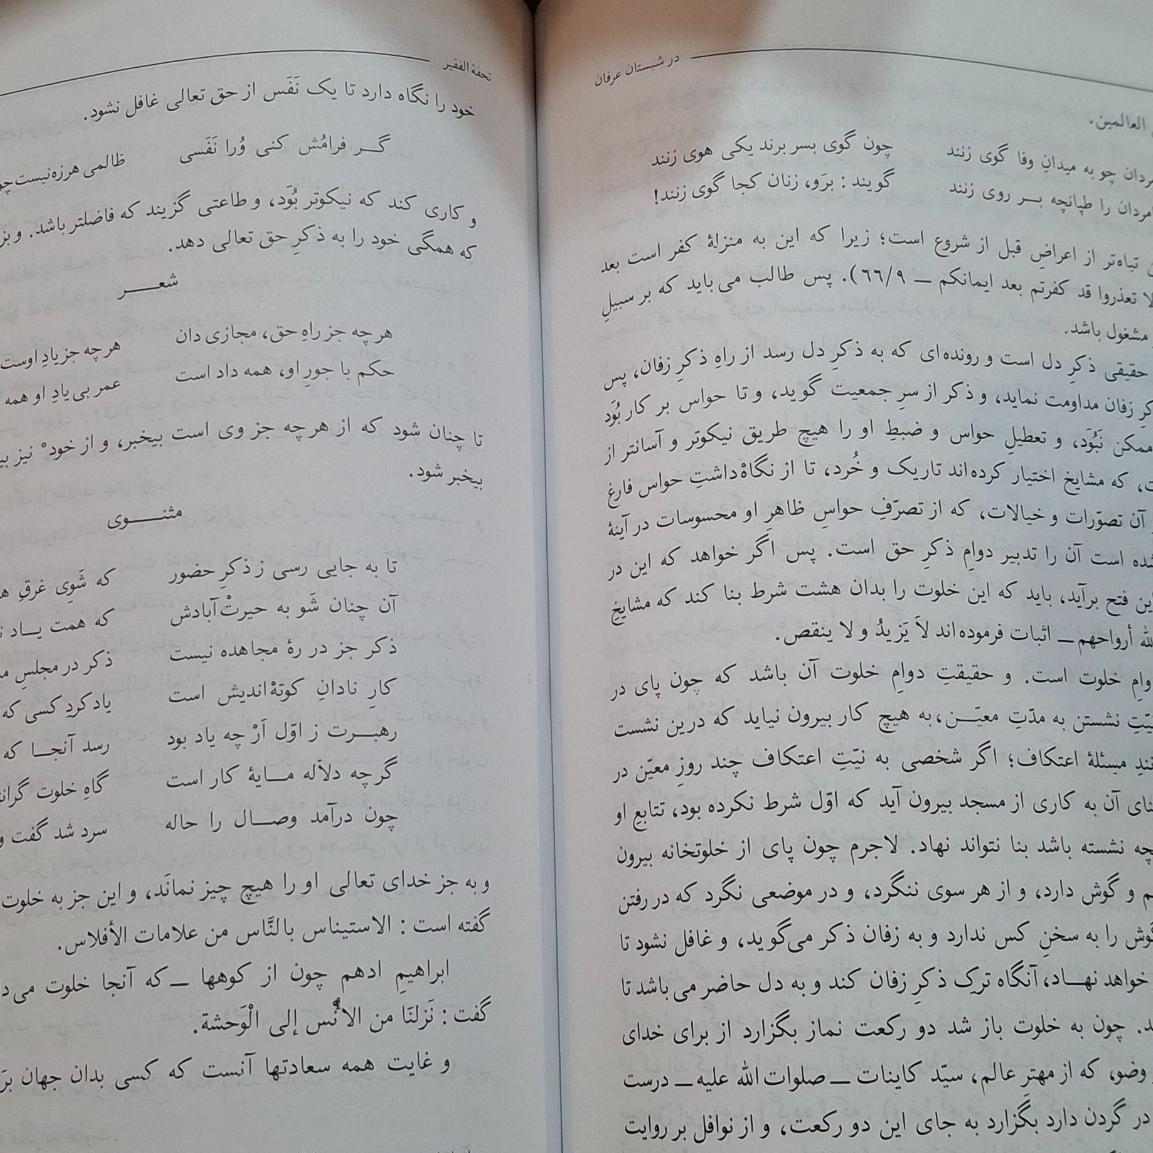 در شبستان عرفان
العالمین.
مردان چو به میدانِ وفا گوی زنند چون گوی بسر برند یکی هوی زنند
نامردان را طپانچه بـــر روی زنند گویند : برَو، زنان کجا گوی زنند!
تباه‌تر از اعراضِ قبل از شروع است؛ زیرا که این به منزلهٔ کفر است بعد
لا تعذروا قد کفرتم بعد ایمانکم ــ ۶۶/۹). پس طالب می باید که بر سبیلِ
مشغول باشد.
حقیقی ذکرِ دل است و رونده‌ای که به ذکرِ دل رسد از راهِ ذکرِ زفان، پس
ذکرِ زفان مداومت نماید، و ذکر از سرِ جمعیت گوید، و تا حواس بر کار بُوَد
ممکن نَبُوَد، و تعطیلِ حواس و ضبطِ او را هیچ طریق نیکوتر و آسانتر از
که مشایخ اختیار کرده‌اند تاریک و خُرد، تا از نگاهْ‌داشتِ حواس فارغ
آن تصوّرات و خیالات، که از تصرّفِ حواسِ ظاهرِ او محسوسات در آینهٔ
شده است آن را تدبیر دوامِ ذکرِ حق است. پس اگر خواهد که این در
این فتح برآید، باید که این خلوت را بدان هشت شرط بنا کند که مشایخ
الله أرواحهم ــ اثبات فرموده‌اند لاَ یَزیدُ و لا ینقص.
دوامِ خلوت است. و حقیقتِ دوامِ خلوت آن باشد که چون پای در
نیّتِ نشستن به مدّتِ معیّـــن،به هیچ کار بیرون نیاید که درین نشست
مانندِ مسئلهٔ اعتکاف؛ اگر شخصی به نیّتِ اعتکاف چند روزِ معیّن در
اثنای آن به کاری از مسجد بیرون آید که اوّل شرط نکرده بود، تتابعِ او
نشسته باشد بنا نتواند نهاد. لاجرم چون پای از خلوتخانه بیرون
و گوش دارد، و از هر سوی ننگرد، و در موضعی نگرد که در رفتن
گوش را به سخنِ کس ندارد و به زفان ذکر می‌گوید، و غافل نشود تا
خواهد نهـــاد، آنگاه ترکِ ذکرِ زفان کند و به دل حاضر می باشد تا
چون به خلوت باز شد دو رکعت نماز بگزارد از برای خدای
وضو، که از مهترِ عالم، سیّد کاینات ــ صلوات الله علیه ــ درست
در گردن دارد بگزارد به جای این دو رکعت، و از نوافل بر روایت
تحفة الفقیر
خود را نگاه دارد تا یک نَفَس از حق تعالی غافل نشود.
گـــر فرامُش کنی وُرا نَفَسی ظالمی هرزه نیست
و کاری کند که نیکوتر بُوَد، و طاعتی گزیند که فاضلتر باشد.
که همگی خود را به ذکرِ حق تعالی دهد.
شعـــــر
هر چه جز راهِ حق، مجازی دان هرچه جز یادِ اوست
حکم با جورِ او، همه داد است عمر بی یادِ او همه
تا چنان شود که از هر چه جز وی است بیخبر، و از خودْ نیز
بیخبر شود.
مثنـــــوی
تا به جایی رسی ز ذکر حضور که شَوی غرقِ
آن چنان شَو به حیرتْ‌آبادش که همت یـــاد
ذکر جز در رهٔ مجاهده نیست ذکر در مجلسِ
کارِ نادانِ کوتهْ‌اندیش است یاد کردِ کسی که
رهبـــرت ز اوّل اَرْ چه یاد بود رسد آنجـــا که
گرچه دلاّله مـــایهٔ کار است گاهِ خلوت
چون درآمد وصـــال را حاله سرد شد گفت
و به جز خدای تعالی او را هیچ چیز نمانَد، و این جز به خلوت
گفته است : الاستیناس بالنَّاس من علامات الأفلاس.
ابراهیمِ ادهم چون از کوهها ــ که آنجا خلوت
گفت : نَزلنَا من الاُنْس إلی الْوَحشة.
و غایت همه سعادتها آنست که کسی بدان جهان